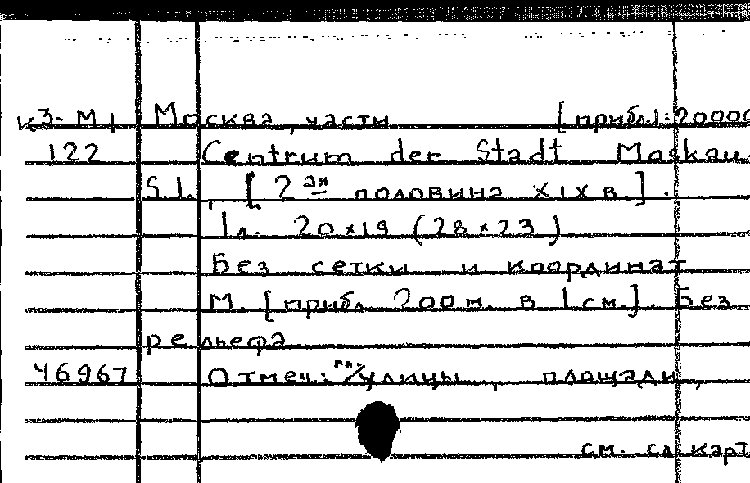 к3-М1 Москва, части [прибл. 1:20000
122 Centrum der Stadt Moskau.
S.l., [2ая половина XIX в].
1л. 20×19 (28×23)
Без сетки и координат
М. [прибл. 200м. в 1см.]. Без
рельефа
46967 Отмеч.: улицы, площади,
см. сл. карт